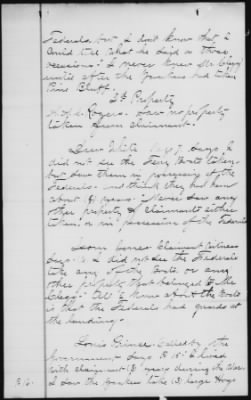 Federals but I don't know that I
could tell what he said on those
occasions." I never knew Mr Clegg
until after the Yankees had taken
Pine Bluff."
2d Property
Rogers. Saw no property
taken from claimant.
Drew White Says, I
did not see the Ferry Boats taken,
but saw them in possession of the
Federals and think they had been
about years. Never saw any
other property of claimants either
taken, or in possession of the Federals
Claimants Witness
Says: I did not see the Federals
take any of the Boats or any
other property that belonged to Mr
Clegg. All I know about the Boats
is that the Federals had guards at
the landing.
Louis Prince Called by the
Government Says "I lived
with claimant years during the War.
I saw the Yankees take large Hogs